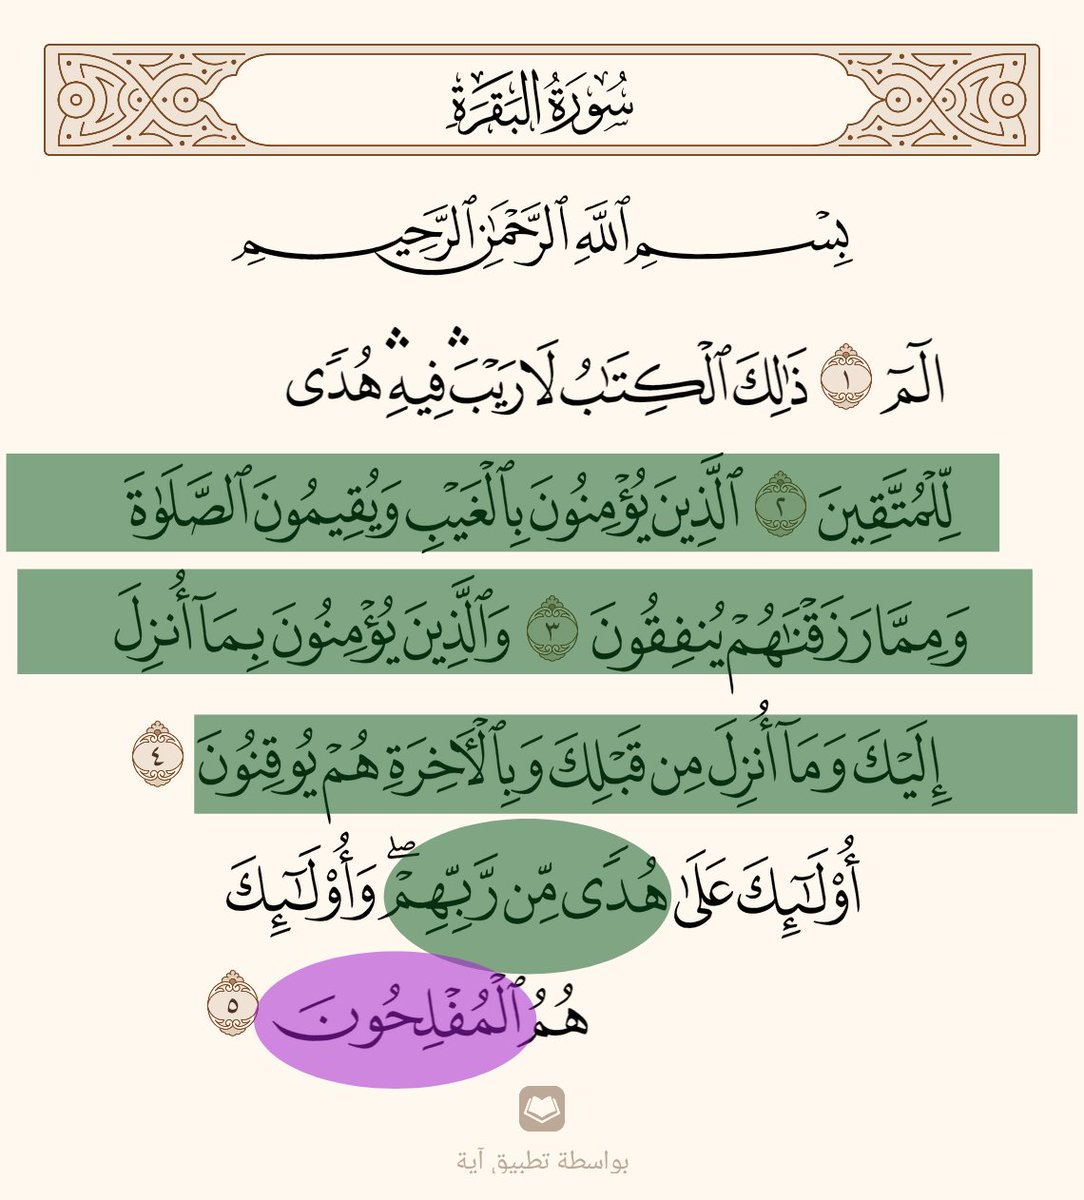 سُورَةُ البَقَرَةِ
بِسْمِ ٱللَّهِ ٱلرَّحْمَٰنِ ٱلرَّحِيمِ
الٓمٓ ١ ذَٰلِكَ ٱلْكِتَٰبُ لَا رَيْبَ ۛ فِيهِ ۛ هُدًى
لِّلْمُتَّقِينَ ٢ ٱلَّذِينَ يُؤْمِنُونَ بِٱلْغَيْبِ وَيُقِيمُونَ ٱلصَّلَوٰةَ
وَمِمَّا رَزَقْنَٰهُمْ يُنفِقُونَ ٣ وَٱلَّذِينَ يُؤْمِنُونَ بِمَآ أُنزِلَ
إِلَيْكَ وَمَآ أُنزِلَ مِن قَبْلِكَ وَبِٱلْأَخِرَةِ هُمْ يُوقِنُونَ ٤
أُو۟لَٰٓئِكَ عَلَىٰ هُدًى مِّن رَّبِّهِمْ ۖ وَأُو۟لَٰٓئِكَ
هُمُ ٱلْمُفْلِحُونَ ٥
بواسطة تطبيق آية